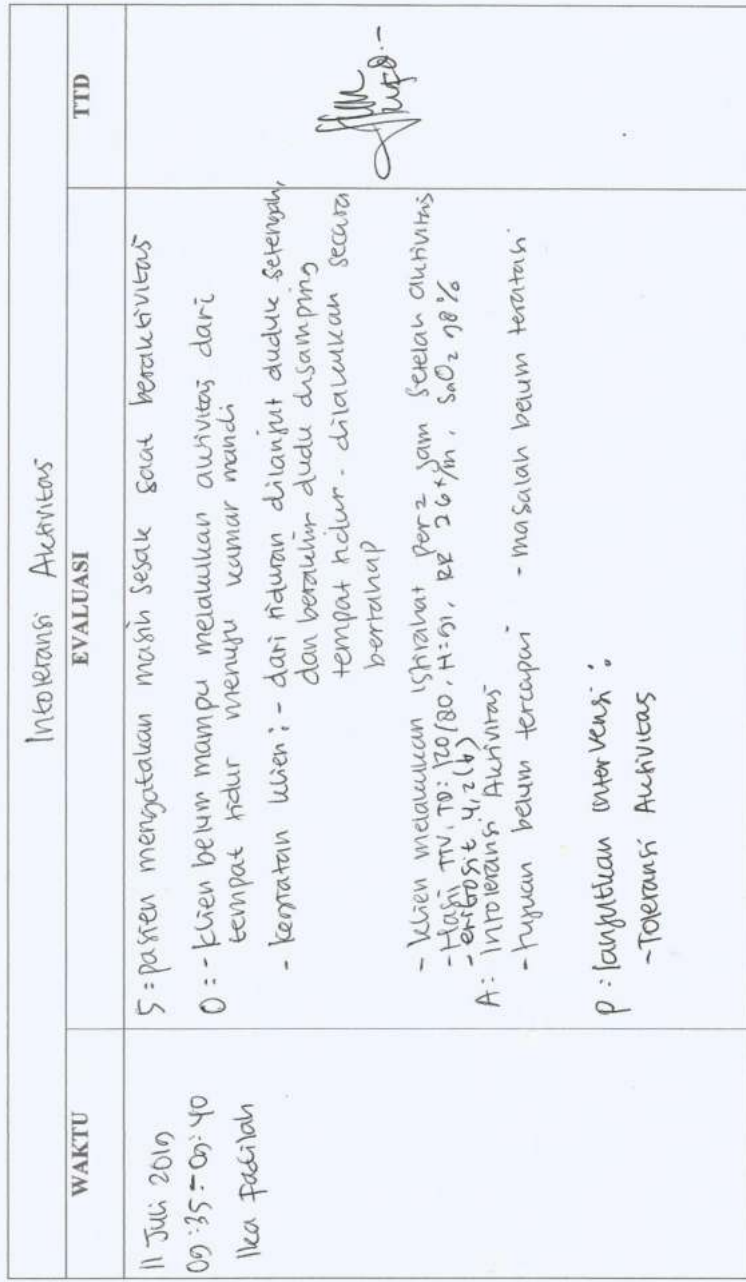 Intoleransi Aktivitas
WAKTU
EVALUASI
TTD
11 Juli 2019
09:35-09:40
Ika Fadilah
S : pasien mengatakan masih sesak saat beraktivitas
O : - klien belum mampu melakukan aktivitas dari
tempat tidur menuju kamar mandi
- kegiatan klien : - dari tiduran dilanjut duduk setengah,
dan berakhir dudu disamping
tempat tidur - dilakukan secara
bertahap
- klien melakukan istirahat per 2 jam setelah aktivitas
- Hasil TTV, TD: 120/80, N=91, RR 26x/m, SaO2 98%
- eritrosit 4,2 (L)
A : Intoleransi Aktivitas
- tujuan belum tercapai - masalah belum teratasi
P : lanjutkan intervensi :
- Toleransi Aktivitas